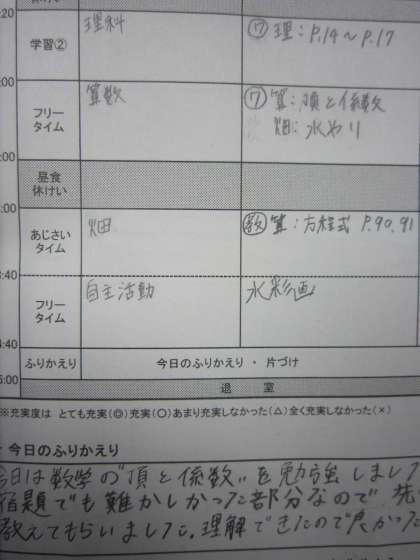 :20
休けい
学習②
理科
㋻ 理：P.14～P.17
:00
フリー
タイム
算数
㋻ 算：項と係数
畑：水やり
:00
昼食
休けい
:00
あじさい
タイム
畑
㋯ 算：方程式 P.90,91
:40
フリー
タイム
自主活動
水彩画
:40
ふりかえり
今日のふりかえり ・ 片づけ
5:00
退 室
※充実度は とても充実(◎)充実(○)あまり充実しなかった(△)全く充実しなかった(×)
今日のふりかえり
今日は数学の"項と係数"を勉強しまし
宿題でも難かしかった部分なので 先
教えてもらいました。理解できたので良かった